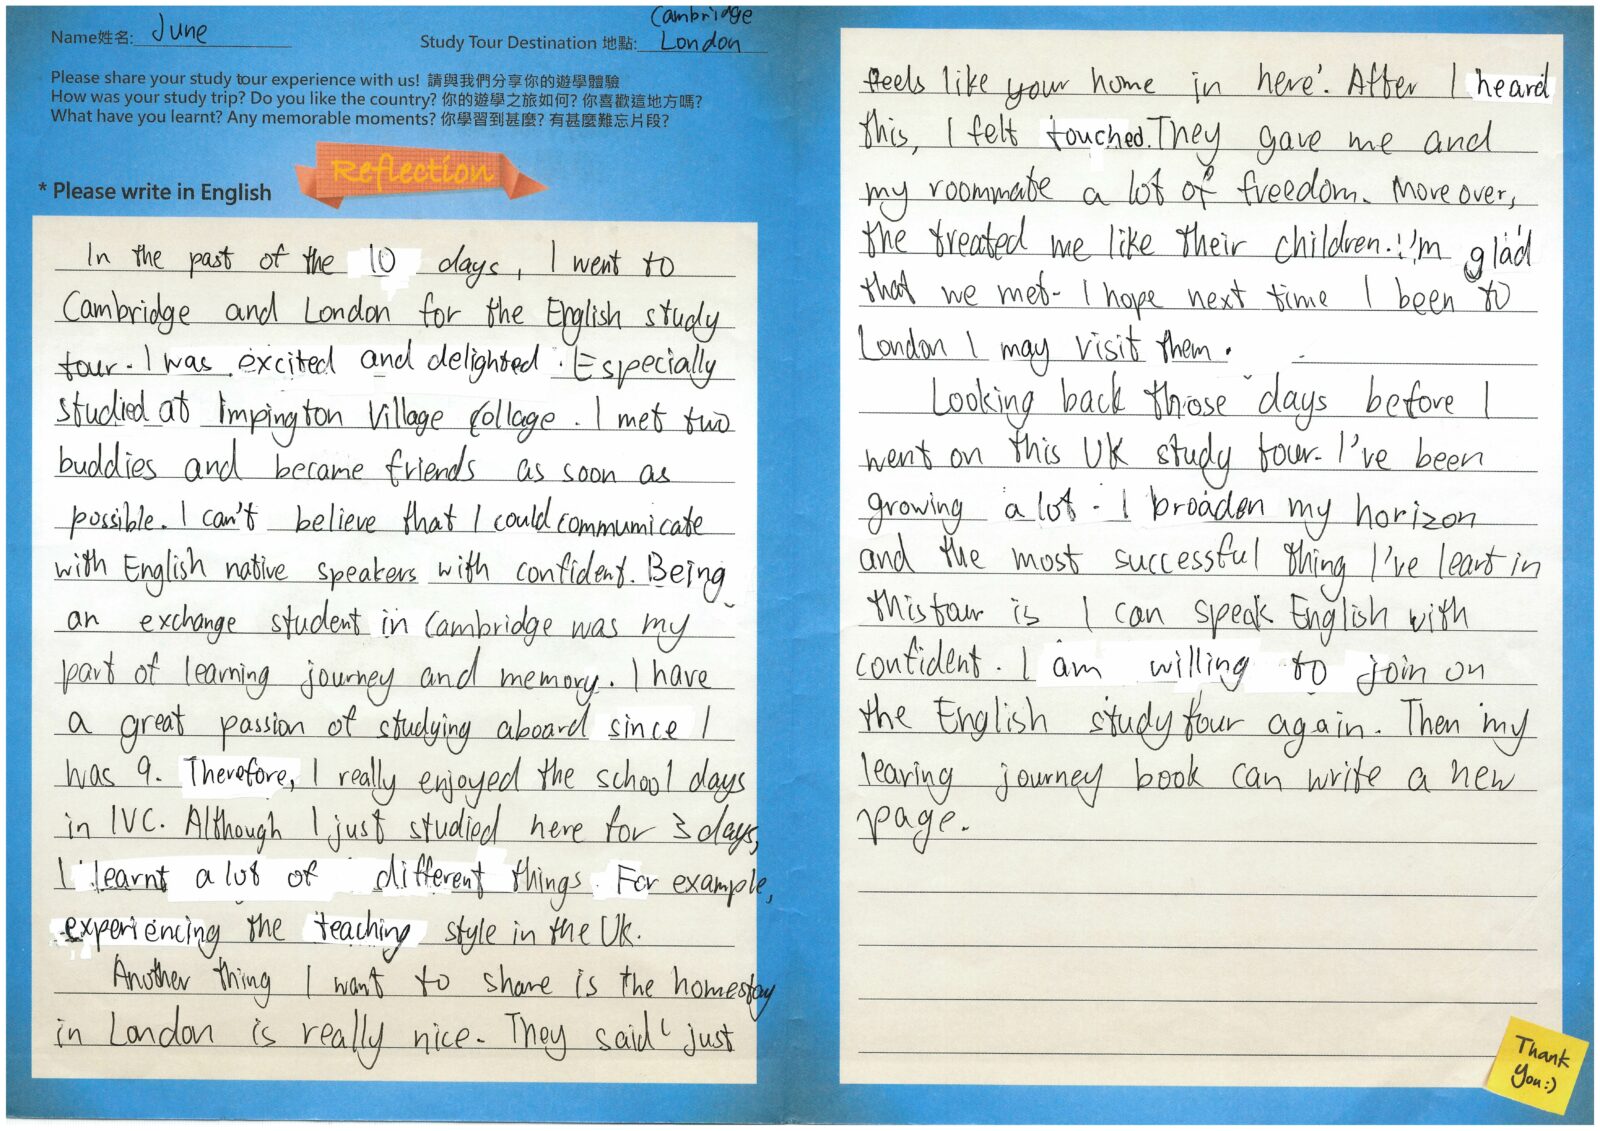 Name姓名: June
Study Tour Destination 地點: Cambridge
London
Please share your study tour experience with us! 請與我們分享你的遊學體驗
How was your study trip? Do you like the country? 你的遊學之旅如何? 你喜歡這地方嗎?
What have you learnt? Any memorable moments? 你學習到甚麼? 有甚麼難忘片段?
Reflection
* Please write in English
In the past of the 10 days, I went to
Cambridge and London for the English study
tour. I was excited and delighted. Especially
studied at Impington Village Collage. I met two
buddies and became friends as soon as
possible. I can't believe that I could communicate
with English native speakers with confident. Being
an exchange student in Cambridge was my
part of learning journey and memory. I have
a great passion of studying aboard since I
was 9. Therefore, I really enjoyed the school days
in IVC. Although I just studied here for 3 days,
I learnt a lot of different things. For example,
experiencing the teaching style in the UK.
Another thing I want to share is the homestay
in London is really nice. They said ' just
feels like your home in here'. After I heard
this, I felt touched. They gave me and
my roommate a lot of freedom. Moreover,
the treated me like their children. I'm glad
that we met. I hope next time I been to
London I may visit them.
Looking back those days before I
went on this UK study tour. I've been
growing a lot. I broaden my horizon
and the most successful thing I've leart in
this tour is I can speak English with
confident. I am willing to join on
the English study tour again. Then my
learing journey book can write a new
page.
Thank
You:)